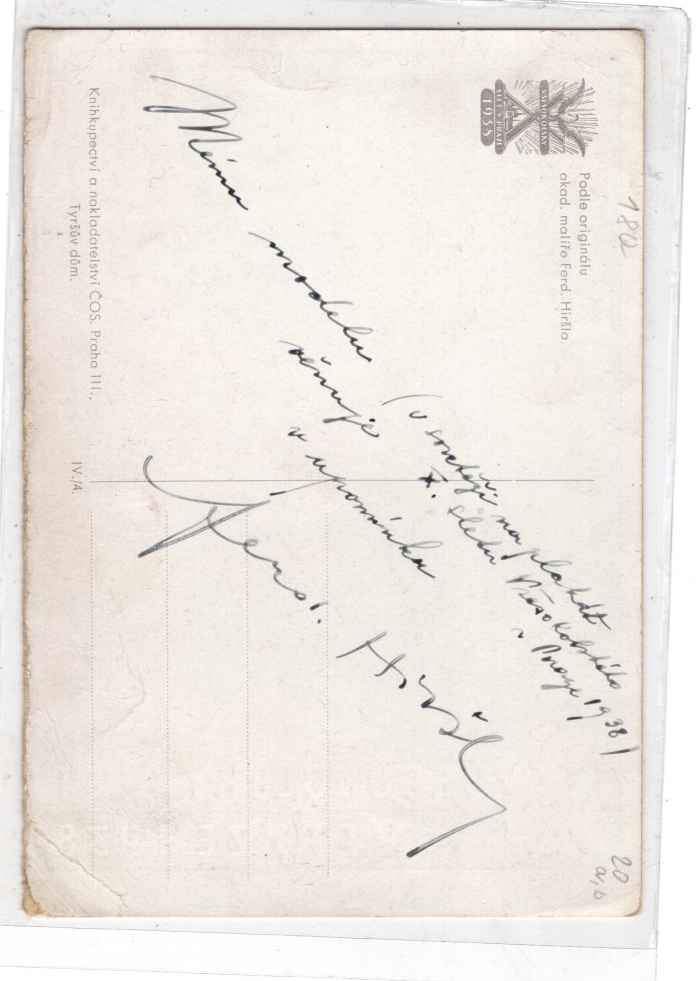 1938
Podle originálu
akad. malíře Ferd. Hiršla
180
Mému modelu
(v soutěži na plakát
X. sletu Všesokolského
v Praze 1938)
věnuje
v upomínku
Ferd. Hiršl
Knihkupectví a nakladatelství ČOS, Praha III.,
Tyršův dům.
IV./A.
20
a,b